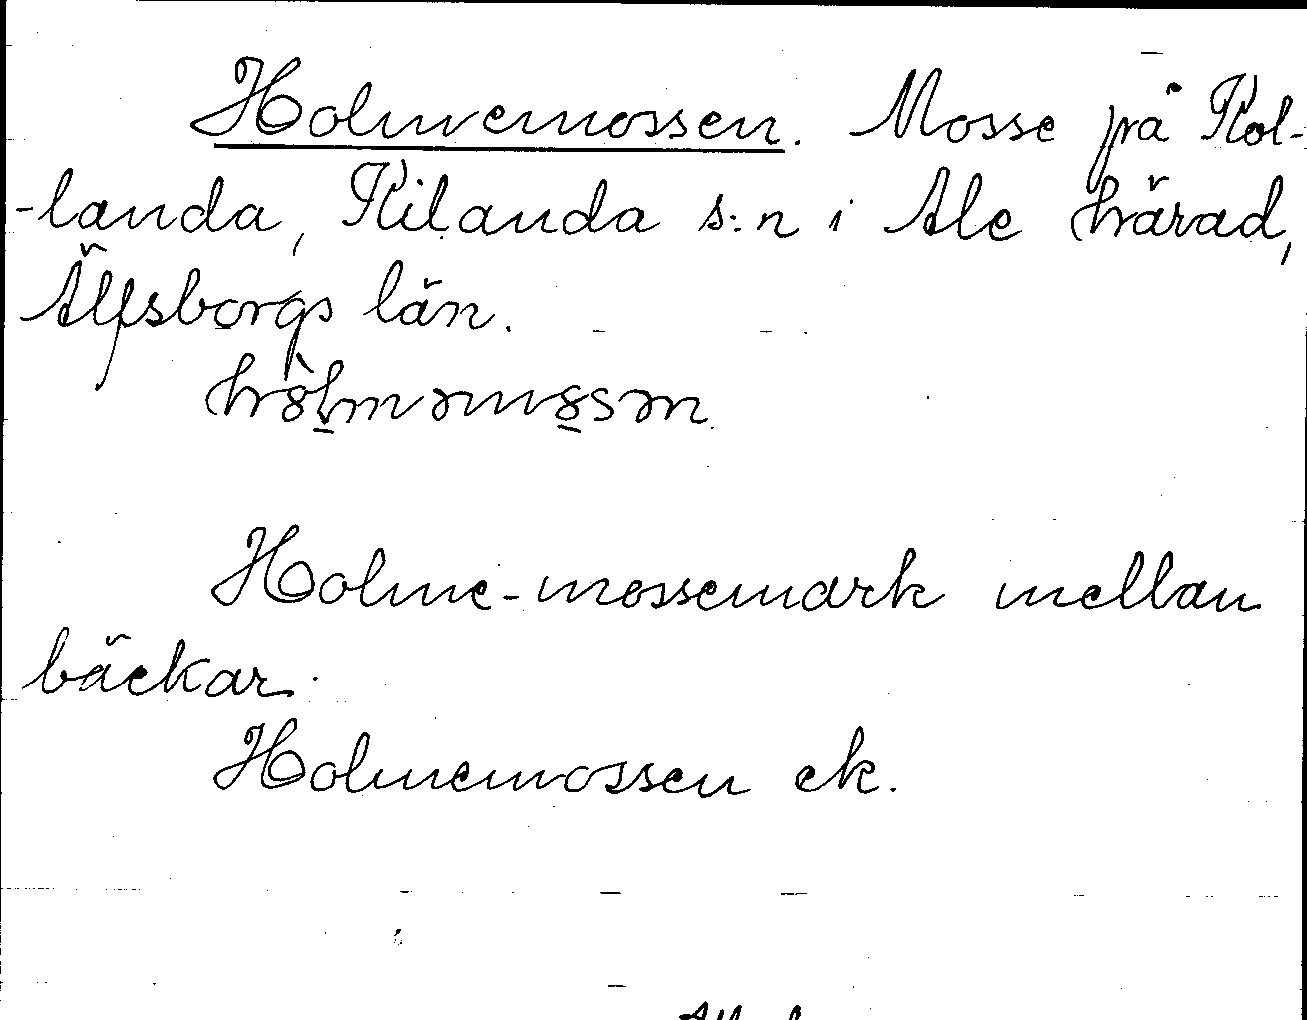 Holmemossen. Mosse på Kol-
-landa, Kilanda s:n i Ale härad,
Älfsborgs län.
Holme-mossemark mellan
bäckar.
Holmemossen ek.